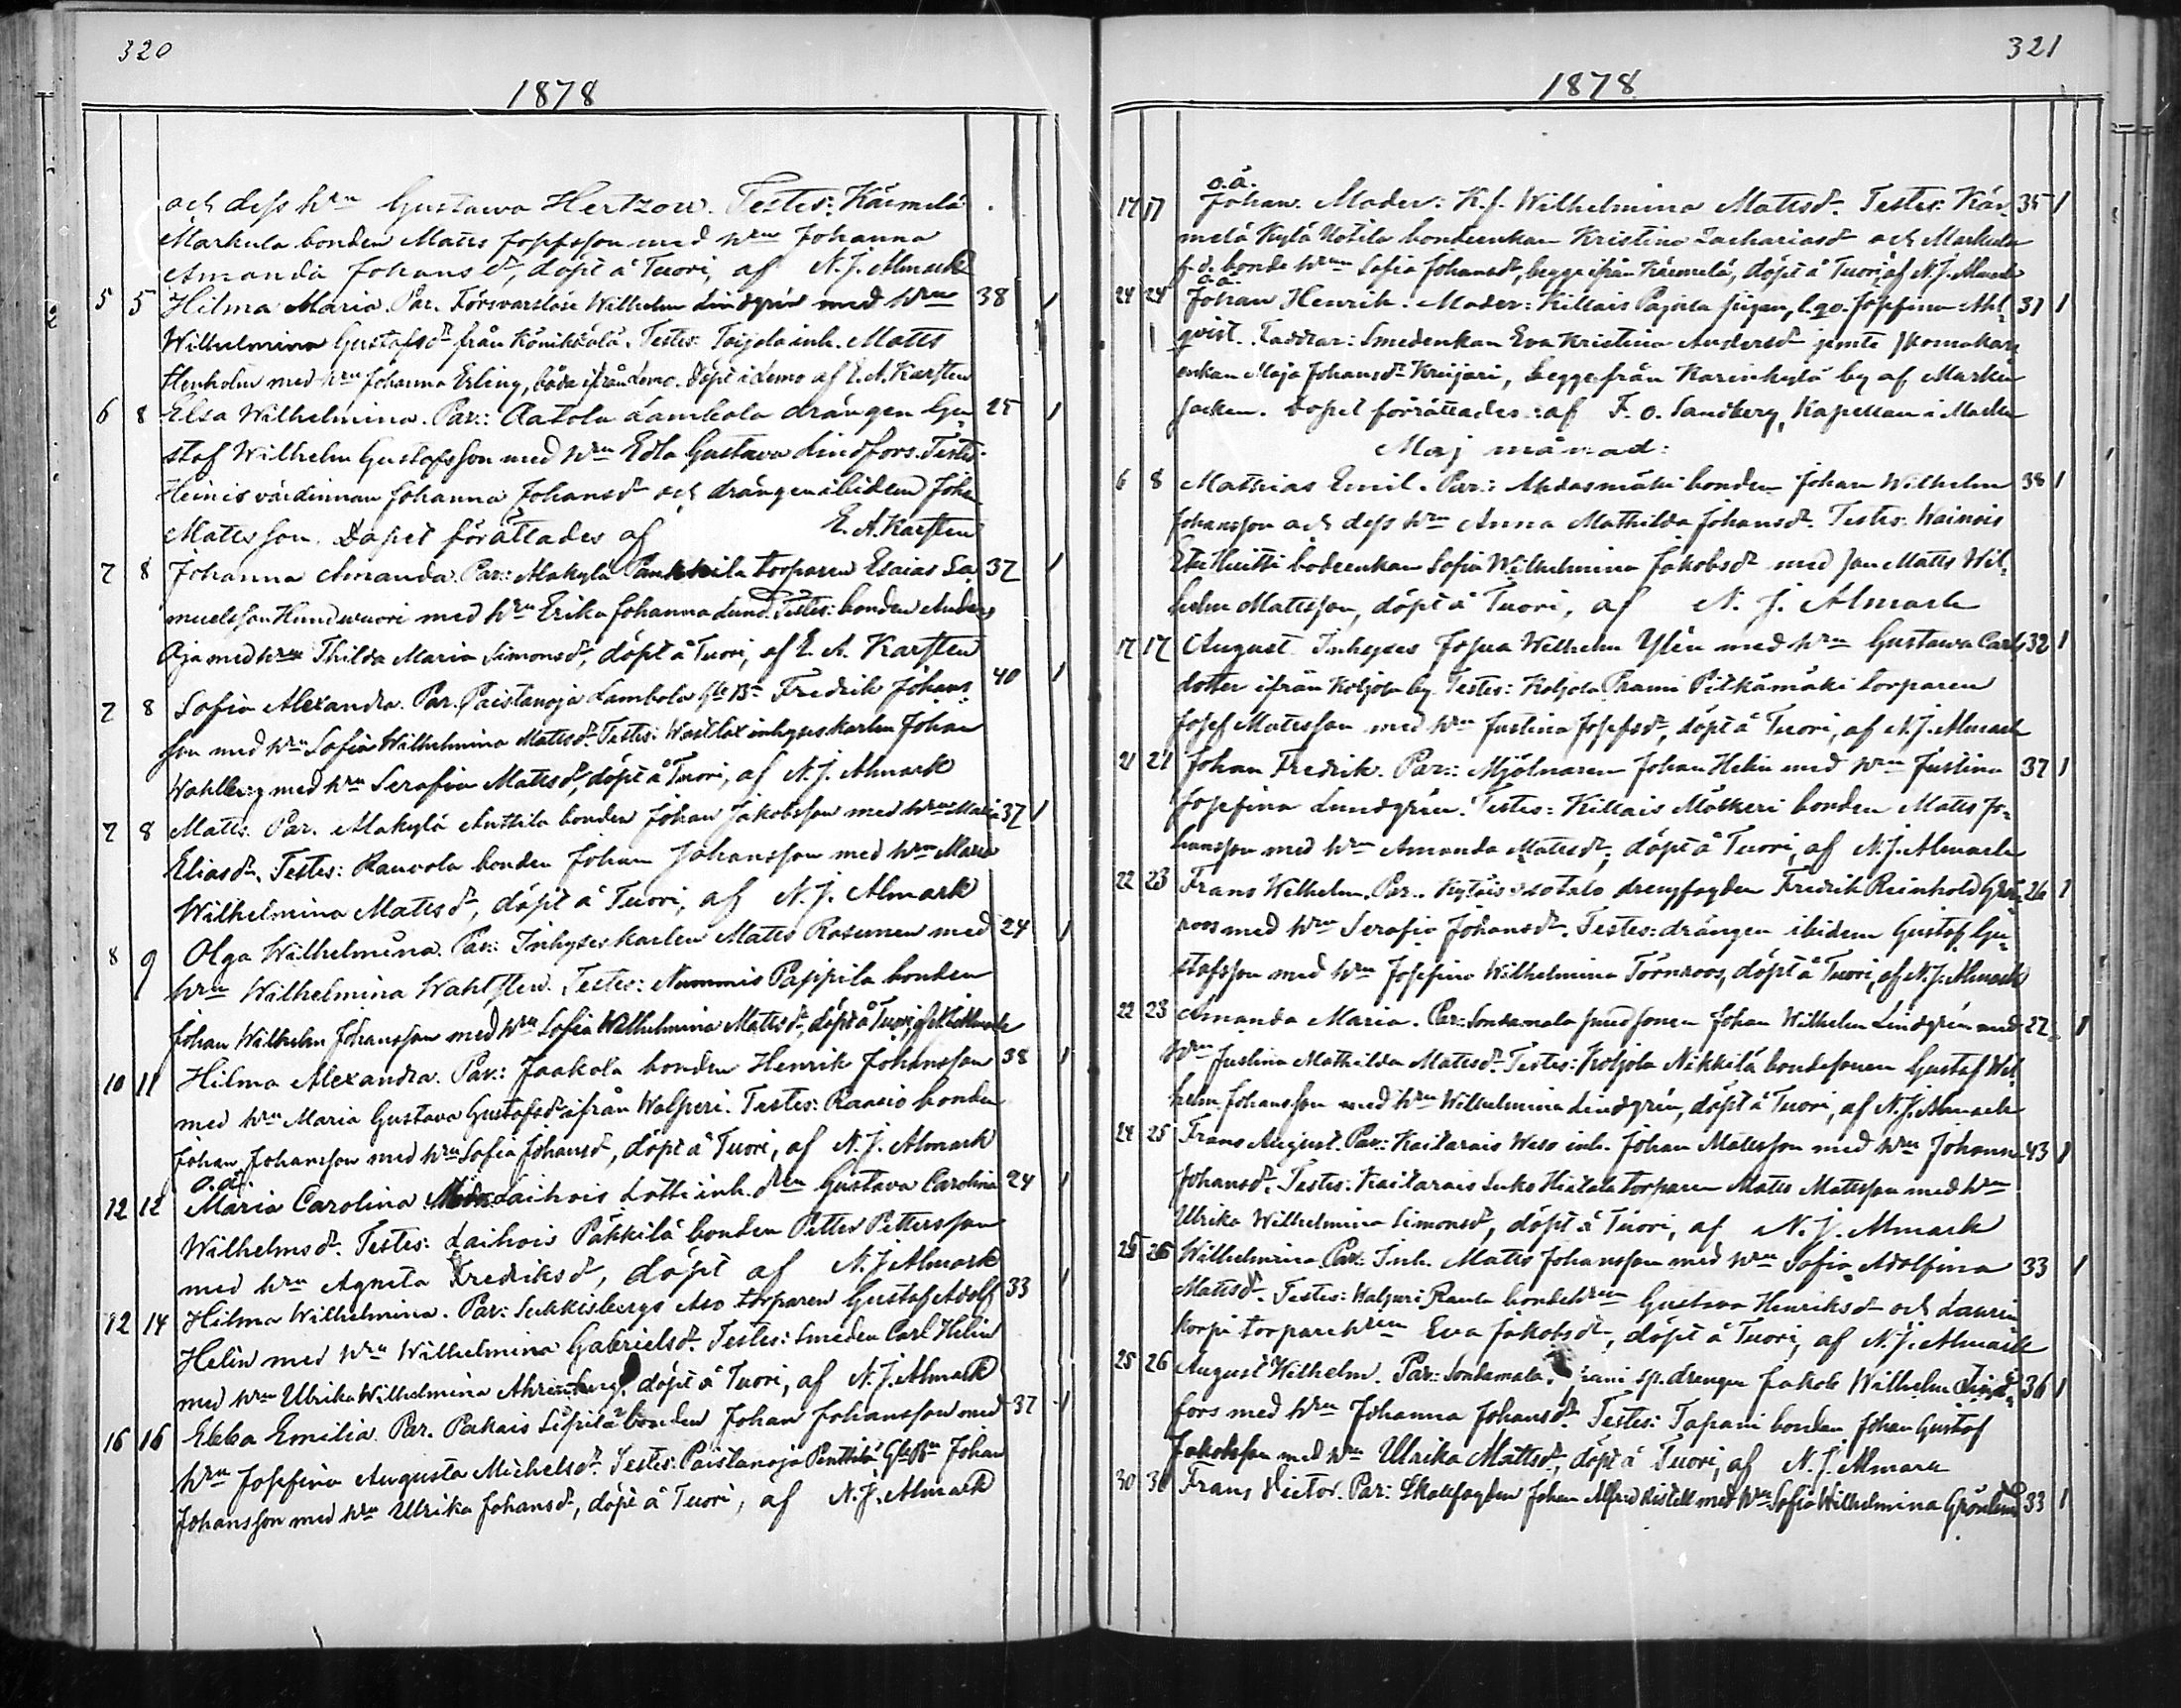 320
1878
och dess h:ru Gustawa Hertzow. Testes: Kärmelä
Markula bonden Matts Josefsson med h:ru Johanna
Amanda Johansd:r, döpt å Tuori, af N. J. Almark
5 5 Hilma Maria. Par. Försvarslöse Wilhelm Lindgrén med h:ru 38 1
Wilhelmina Gustafsd:r från Testes: Toijola inh. Matts
med h:ru Johanna Erling, båda ifrån Lemo. Döpt i Lemo af E. A. Karsten
6 8 Elsa Wilhelmina. Par.: Aatola Lambola drängen Gu- 25 1
staf Wilhelm Gustafsson med h:ru Edla Gustawa Lindfors. Testes.
Heinis värdinnan Johanna Johansd:r och drängen ibidem Joha
Mattsson. Dopet förättades af E. A. Karsten
7 8 Johanna Amanda. Par.: Alakylä torparen Esaias Sa- 37 1
muelsson med h:ru Erika Johanna Lund. Testes: bonden Anders
Oja med h:ru Thilda Maria Simonsd:r, döpt å Tuori, af E. A. Karsten
7 8 Sofia Alexandra. Par. Paistanoja Lambola Fredrik Johans- 40 1
son med h:ru Sofia Wilhelmina Mattsd:r. Testes: inhyseskarlen Johan
Wahlberg med h:ru Serafia Mattsd:r, döpt å Tuori, af N. J. Almark
7 8 Matts. Par. Alakylä Anttila bonden Johan Jakobsson med h:ru Maria 37 1
Eliasd:r. Testes: Rauvola bonden Johan Johansson med h:ru Maria
Wilhelmina Mattsd:r, döpt å Tuori, af N. J. Almark
8 9 Olga Wilhelmina. Par: Inhyseskarlen Matts med 24 1
h:ru Wilhelmina Wahlsten. Testes: Nummis Pappila bonden
Johan Wilhelm Johansson med h:ru Sofia Wilhelmina Mattsd:r, döpt å Tuori, af N. J. Almark
10 11 Hilma Alexandra. Par.: Jaakola bonden Henrik Johansson 38 1
med h:ru Maria Gustava Gustafsd:r ifrån Walperi. Testes: Raasio bonden
Johan Johansson med h:ru Sofia Johansd:r, döpt å Tuori, af N. J. Almark
o.ä.
12 12 Maria Carolina. Laihois inh. Gustava Carolina 24 1
Wilhelmsd:r. Testes: Laihois Päkkilä bonden Petter Pettersson
med h:ru Agneta Fredriksd:r, döpt af N. J. Almark
12 14 Hilma Wilhelmina. Par: torparen Gustaf Adolf 33 1
Helin med h:ru Wilhelmina Gabrielsd:r. Testes: Smeden Carl Helin
med h:ru Ulrika Wilhelmina döpt å Tuori, af N. J. Almark
16 16 Ebba Emilia. Par. Pakais Seppilä bonden Johan Johansson med 37 1
h:ru Josefina Augusta Michelsd:r. Testes: Paistanoja Penttilä Johan
Johansson med h:ru Ulrika Johansd:r, döpt å Tuori, af N. J. Almark
321
1878
o.ä.
17 17 Johan. Mader: K.f. Wilhelmina Mattsd:r. Testes: Kär- 35 1
melä Kylä bondeenkan Kristina Zachariasd:r och Markula
f.d. bonde h:run Sofia Johansd:r, begge ifrån Kärmelä, döpt å Tuori, af N. J. Almark
o.ä.
24 24 Johan Henrik. Mader: Killais Pajula pigan, Josefina 31 1
qvist. Faddrar: Smedenkan Eva Kristina Andersd:r jemte skomakare
enkan Maja Johansd:r begge från Karinkylä by af Masku
socken. Dopet förrättades af F. O. Sandberg, Kapellan i Masku
Maj månad:
6 8 Mathias Emil. Par.: bonden Johan Wilhelm 38 1
Johansson och dess h:ru Anna Mathilda Johansd:r. Testes:
bodeenkan Sofia Wilhelmina Jakobsd:r med son Matts Wil-
helm Mattsson, döpt å Tuori, af N. J. Almark
17 17 August. Inhyses Josua Wilhelm Ylén med h:ru Gustawa Carls- 32 1
dotter ifrån Koljola by. Testes: Koljola Pitkämäki torparen
Josef Mattsson med h:ru Justina Josefsd:r, döpt å Tuori, af N. J. Almark
21 21 Johan Fredrik. Par.: Mjölnaren Johan Helin med h:ru Justina 37 1
Josefina Lundgrén. Testes: Killais bonden Matts Jo-
hansson med h:ru Amanda Mattsd:r, döpt å Tuori, af N. J. Almark
22 23 Frans Wilhelm. Par.. drengfogden Fredrik Reinhold Grön- 26 1
roos med h:ru Serafia Johansd:r. Testes: drängen ibidem Gustaf Gu-
stafsson med h:ru Josefina Wilhelmina Törnroos, döpt å Tuori, af N. J. Almark
22 23 Amanda Maria. Par: Sondamala smedsonen Johan Wilhelm Lindgrén med 22 1
h:ru Justina Mathilda Mattsd:r. Testes: Koljola Nikkilä bondesonen Gustaf Wil-
helm Johansson med h:ru Wilhelmina Lindgrén, döpt å Tuori, af N. J. Almark
24 25 Frans August. Par.: Kaitarais inh. Johan Mattsson med h:ru Johanna 43 1
Johansd:r. Testes: Kaitarais torparen Matts Mattsson med h:ru
Ulrika Wilhelmina Simonsd:r, döpt å Tuori, af N. J. Almark
25 26 Wilhelmina. Par.: Inh. Matts Johansson med h:ru Sofia Adolfina 33 1
Mattsd:r. Testes: Walperi Raula bondeh:run Gustava Henriksd:r och Laurin
korpi torpareh:run Eva Jakobsd:r, döpt å Tuori, af N. J. Almark
25 26 August Wilhelm. Par: Sondamala sp.drengen Jakob Wilhelm Lind- 36 1
fors med h:ru Johanna Johansd:r. Testes: Tapani bonden Johan Gustaf
Jakobsson med h:ru Ulrika Mattsd:r, döpt å Tuori, af N. J. Almark
30 30 Frans Victor. Par: Johan Alfred med h:ru Sofia Wilhelmina Grönlund 33 1